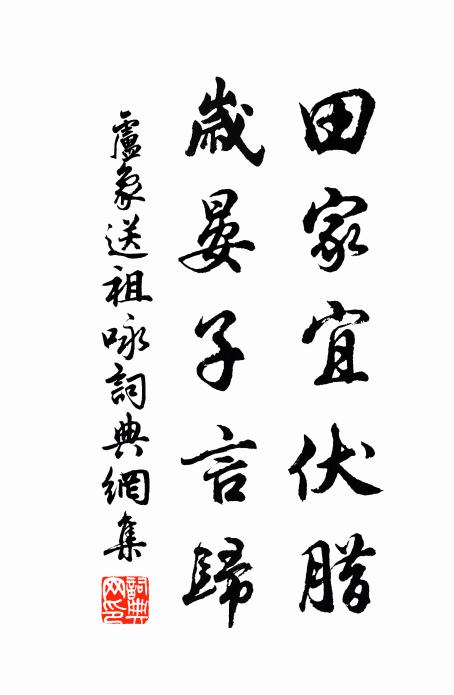 田家宜伏腊
歲晏子言歸
盧象送祖咏詞典網集
詞典網印